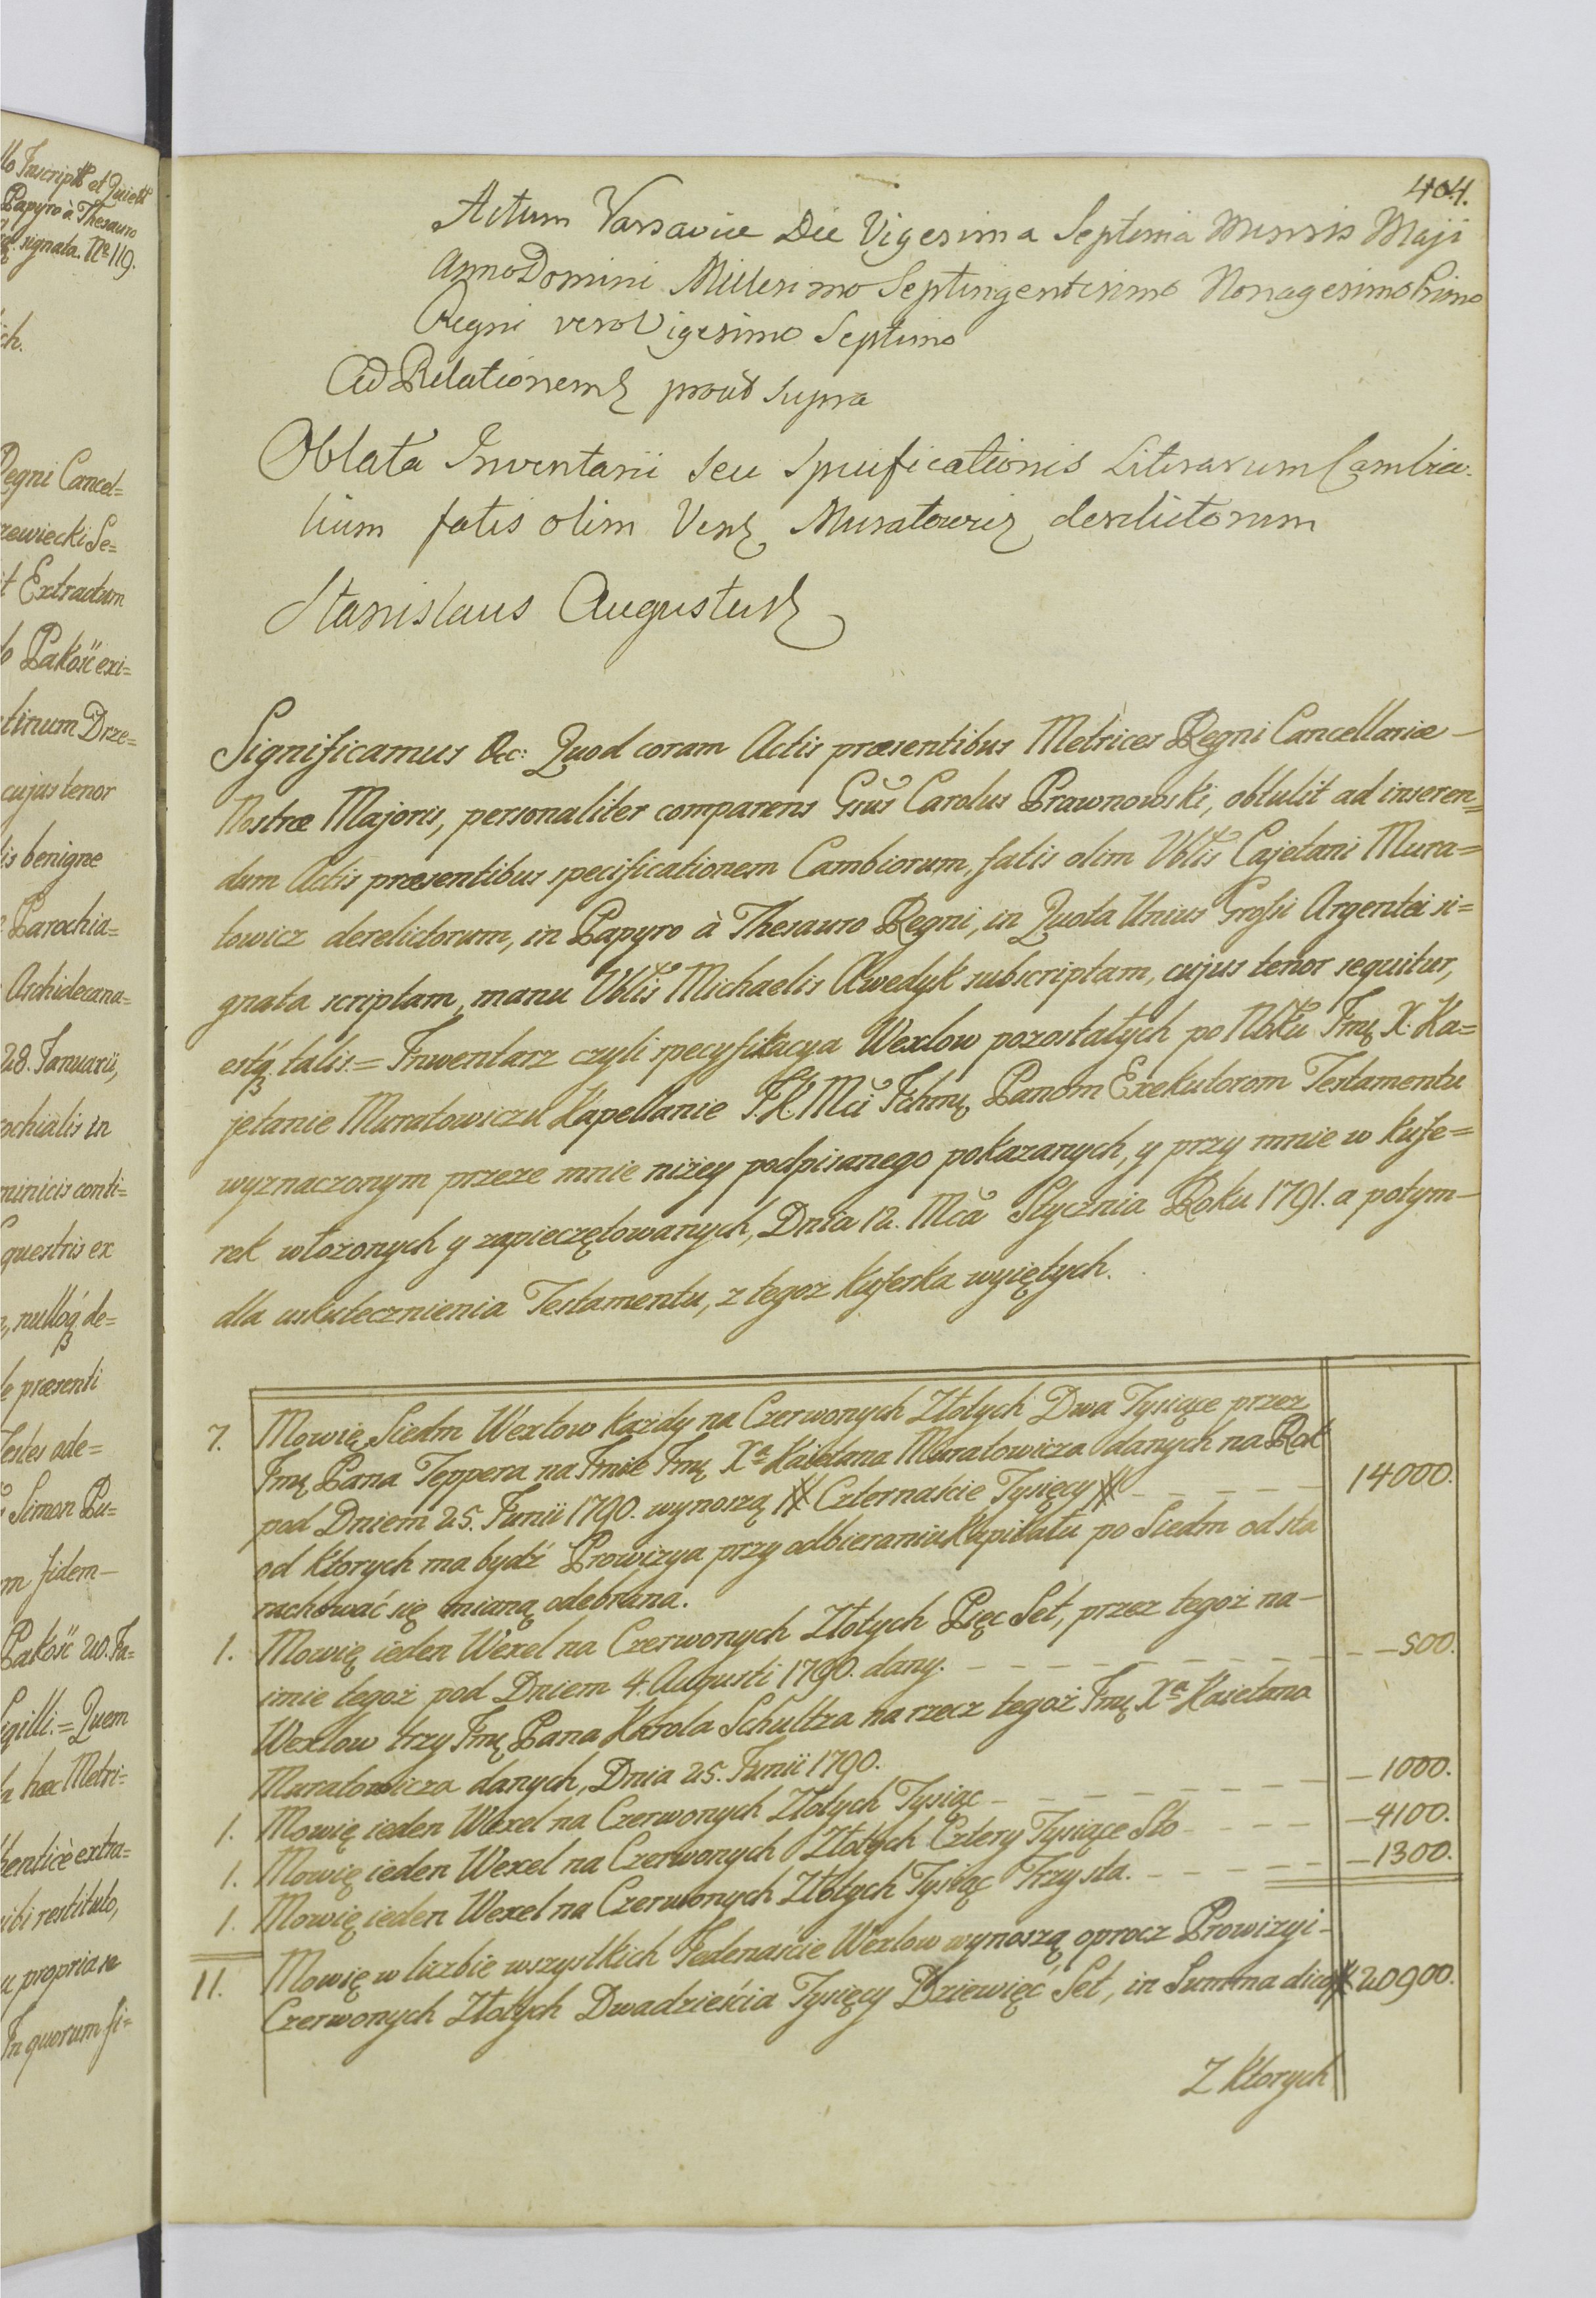 llo Inscript et Quiett
Papyro à Thesauro
signata. No 119.
ch.
Regni Cancel=
zewiecki Se=
t Extractum
o Pakość exi=
tinum Drze=
cujus tenor
is benigne
Parochia=
Archidecana=
28. Januarii,
ochialis in
minicis conti=
questris ex
nullog de=
e præsenti
Testes ade=
Simon Pu=
m fidem—
Pakość 20. Ja=
gilli.= Quem
a hac Metri=
hentice extra=
ibi restituto,
u propria re
In quorum fi=
404.
Actum Varsaviæ Die Vigesima Septima Mensis Maji
Anno Domini Millesimo Septingentesimo Nonagesimo Primo
Regni vero Vigesimo Septimo
Ad Relationem prout Supra
Oblata Inventarii seu Specificationis Literarum Cambia-
lium fatis olim Ven Muratowicz derelictorum
Stanislaus Augustus
Significamus &c: Quod coram Actis præsentibus Metrices Regni Cancellariæ—
Nostræ Majoris, personaliter comparens Gsus Carolus Prawnowski, obtulit ad inseren=
dum Actis præsentibus specificationem Cambiorum, fatis olim Vblis Cajetani Mura=
towicz derelictorum, in Papyro à Thesauro Regni, in Quota Unius Grossi Argentei si=
gnata scriptam, manu Vblis Michaelis Awedyk subscriptam, cujus tenor sequitur,
estq talis.= Inwentarz czyli specyfikacya Wexlow pozostałych po Nbku Jmę X. Ka=
jetanie Muratowiczu Kapellanie J.K.Mci Ichmę Panom Exekutorom Testamentu
wyznaczonym przeze mnie niżey podpisanego pokazanych, y przy mnie w kufe=
rek włożonych y zapieczętowanych, Dnia 12. Mca Stycznia Roku 1791. a potym—
dla uskutecznienia Testamentu, z tegoż kuferka wyiętych.
7. Mowię Siedm Wexlow każdy na Czerwonych Złotych Dwa Tysiące przez
Jmę Pana Teppera na Imie Jmę Xa Kaietana Muratowicza danych na Rok
pod Dniem 25. Junii 1790. wynoszą # Czternaście Tysięcy # 14000.
od ktorych ma bydź Prowizya przy odbieraniu Kapitału po Siedm od sta
rachować się mianą odebrana.
1. Mowię ieden Wexel na Czerwonych Złotych Pięc Set, przez tegoż na—
imie tegoż pod Dniem 4. Augusti 1790. dany. —500.
Wexlow trzy Jmę Pana Karola Schultza na rzecz tegoż Jmę Xa Kaietana
Muratowicza danych, Dnia 25. Junii 1790.
1. Mowię ieden Wexel na Czerwonych Złotych Tysiąc —1000.
1. Mowię ieden Wexel na Czerwonych Złotych Cztery Tysiące Sto —4100.
1. Mowię ieden Wexel na Czerwonych Złotych Tysiąc Trzysta. —1300.
11. Mowię w liczbie wszystkich Jedenaście Wexlow wynoszą, oprocz Prowizyi-
Czerwonych Złotych Dwadzieścia Tysięcy Dziewięć Set, in Summa dico # 20900.
Z Ktorych